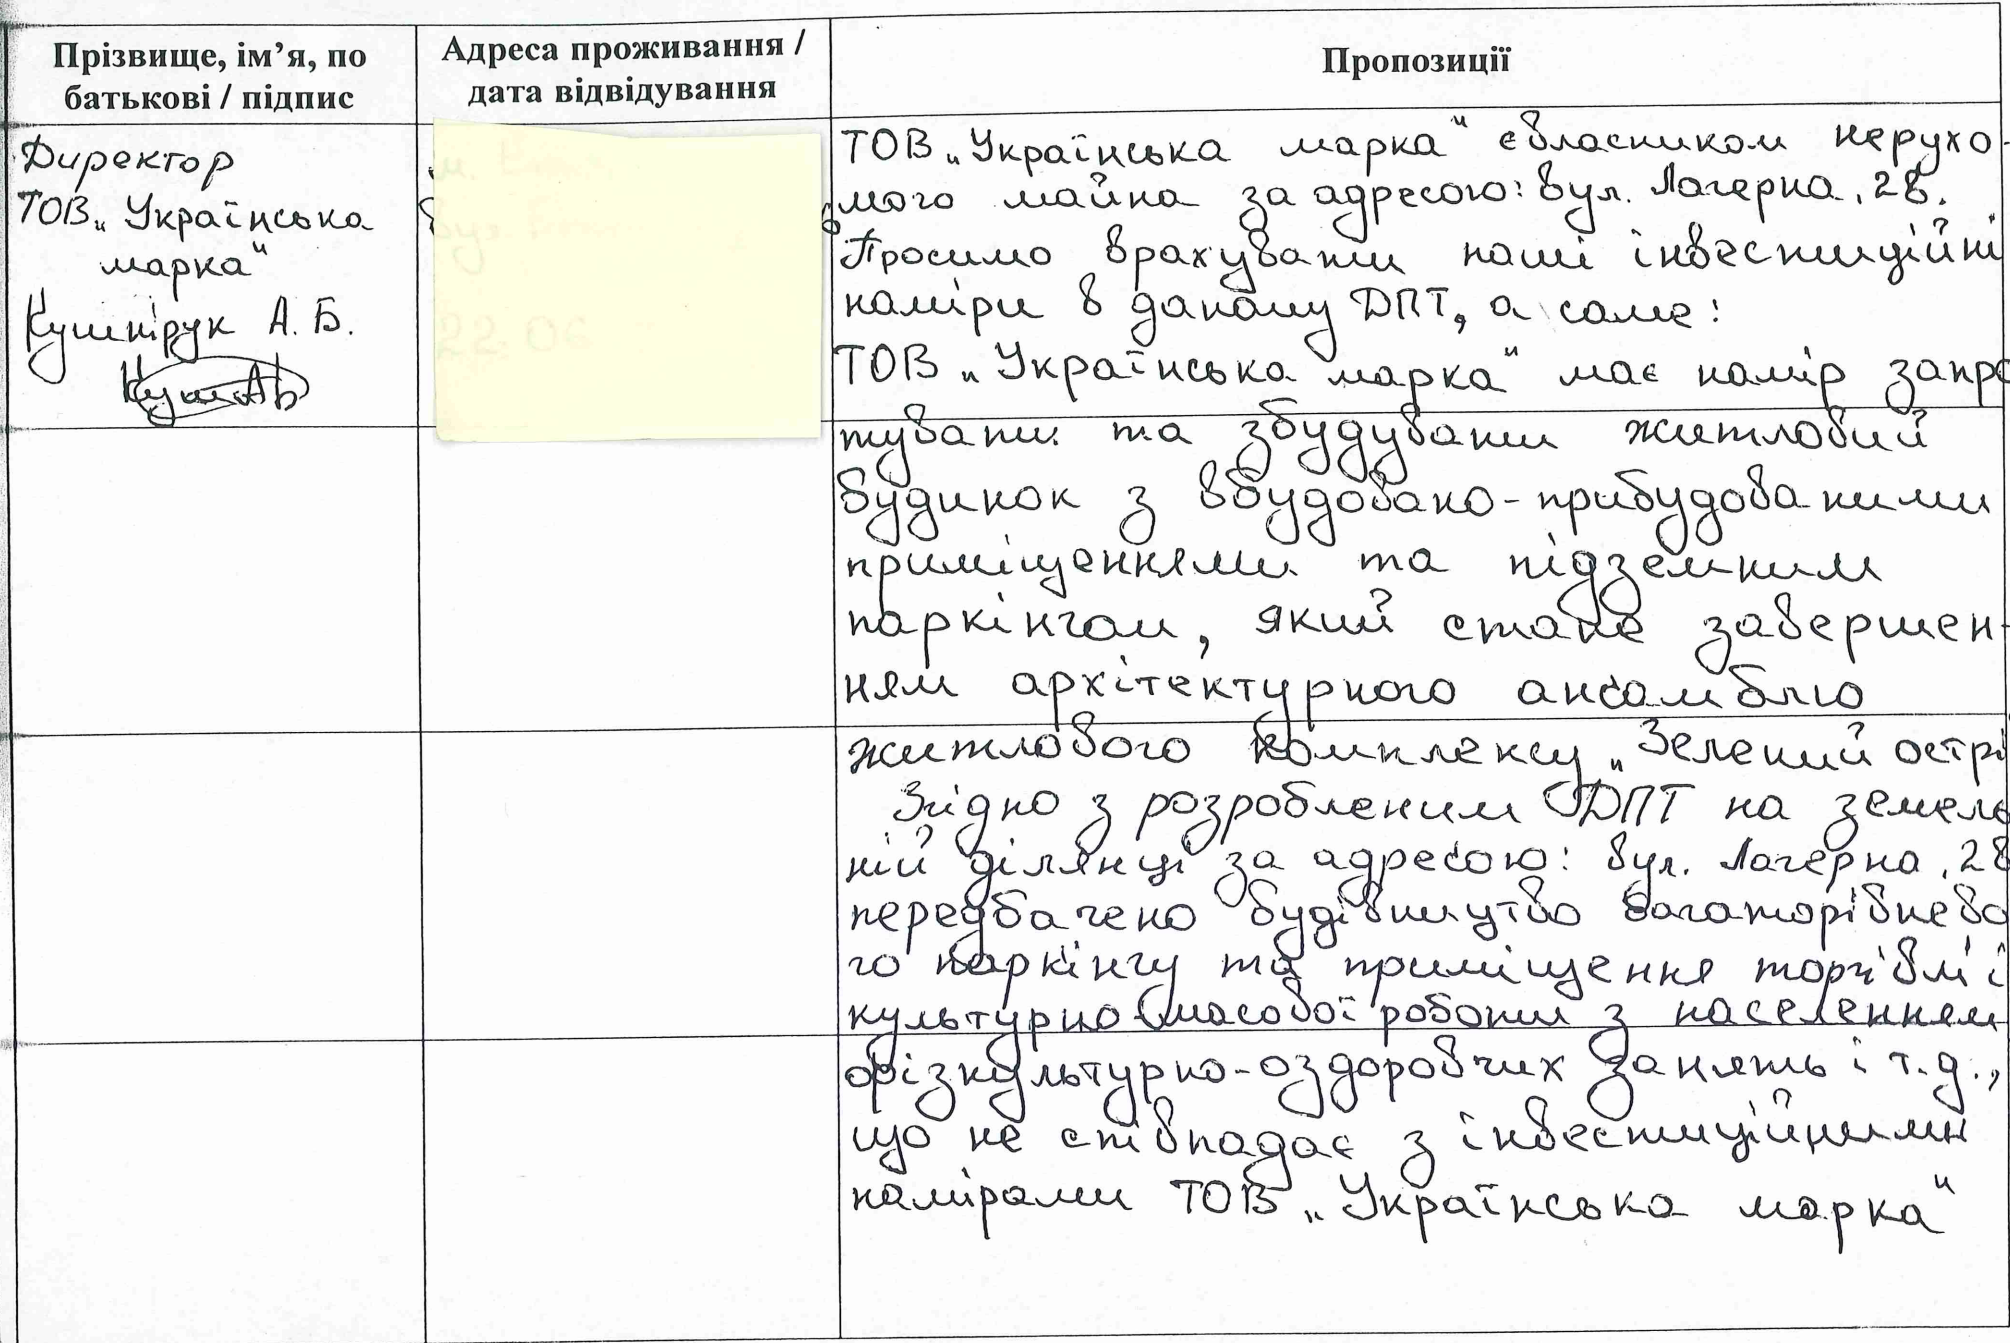 Прізвище, ім’я, по
батькові / підпис
Адреса проживання /
дата відвідування
Пропозиції
Директор
ТОВ „Українська
марка“
Кушнірук А. Б.
22.06
ТОВ „Українська марка“ є власником нерухо-
мого майна за адресою: вул. Лагерна, 28.
Просимо врахувати наші інвестиційні
наміри в даному ДПТ, а саме:
ТОВ „Українська марка“ має намір запро
тувати та збудувати житловий
будинок з вбудовано-прибудованими
приміщеннями та підземним
паркінгом, який стане завершен-
ням архітектурного ансамблю
житлового комплексу „Зелений острі
Згідно з розробленим ДПТ на земель
ній ділянці за адресою: вул. Лагерна, 28
передбачено будівництво багаторівнево
го паркінгу та приміщення торгівлі і
культурно масової роботи з населенням
фізкультурно-оздоровчих занять і т.д.,
що не співпадає з інвестиційними
намірами ТОВ „Українська марка“